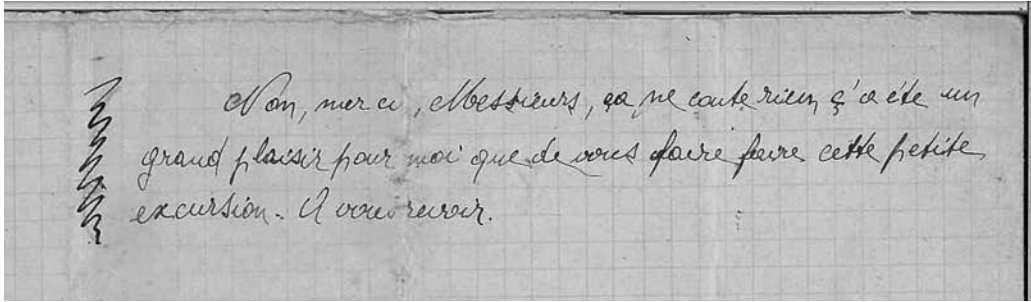 Non, merci, Messieurs, ça ne coute rien, ç'a été un
grand plaisir pour moi que de vous faire faire cette petite
excursion. A vous revoir.